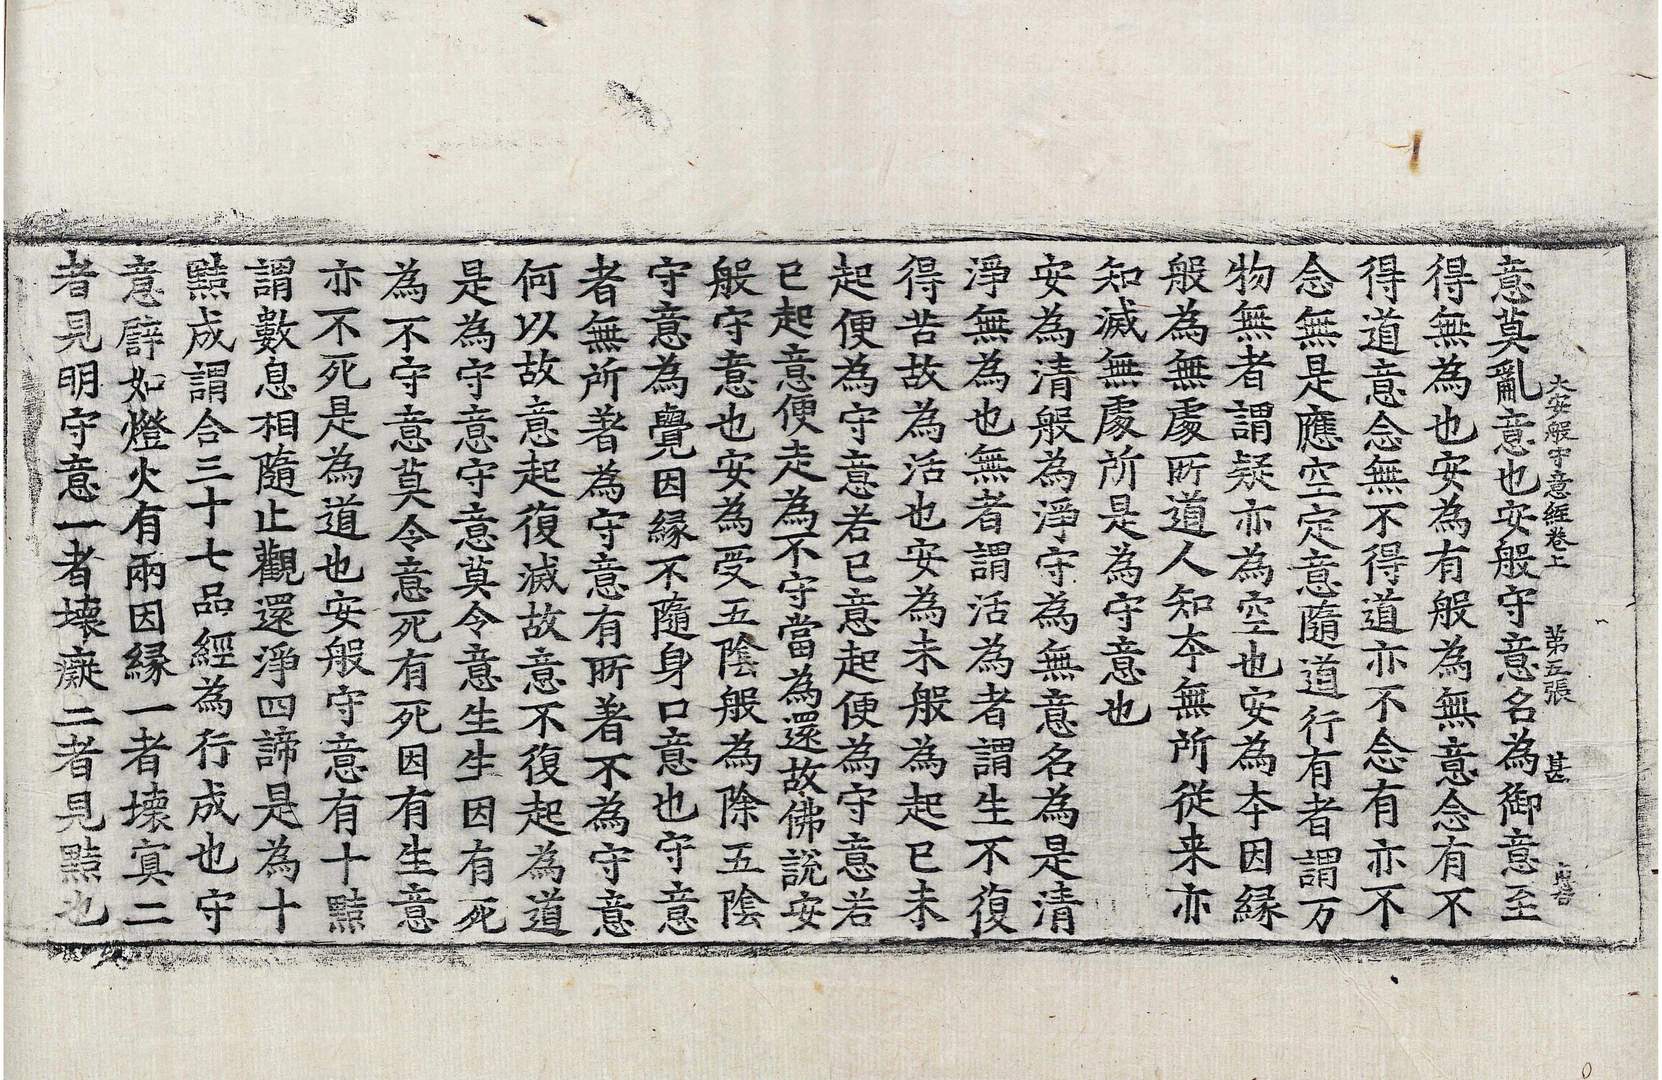 大安般守意経卷上 第五張 甚
意莫亂意也安般守意名為御意至
得無為也安為有般為無意念有不
得道意念無不得道亦不念有亦不
念無是應空定意隨道行有者謂万
物無者謂疑亦為空也安為夲因緣
般為無處所道人知夲無所從来亦
知滅無處所是為守意也
安為清般為淨守為無意名為是清
淨無為也無者謂活為者謂生不復
得苦故為活也安為未般為起已未
起便為守意若已意起便為守意若
已起意便走為不守當為還故佛說安
般守意也安為受五陰般為除五陰
守意為覺因緣不隨身口意也守意
者無所著為守意有所著不為守意
何以故意起復滅故意不復起為道
是為守意守意莫令意生生因有死
為不守意莫令意死有死因有生意
亦不死是為道也安般守意有十黠
謂數息相隨止觀還淨四諦是為十
黠成謂合三十七品經為行成也守
意譬如燈火有兩因緣一者壞冥二
者見明守意一者壞癡二者見黠也